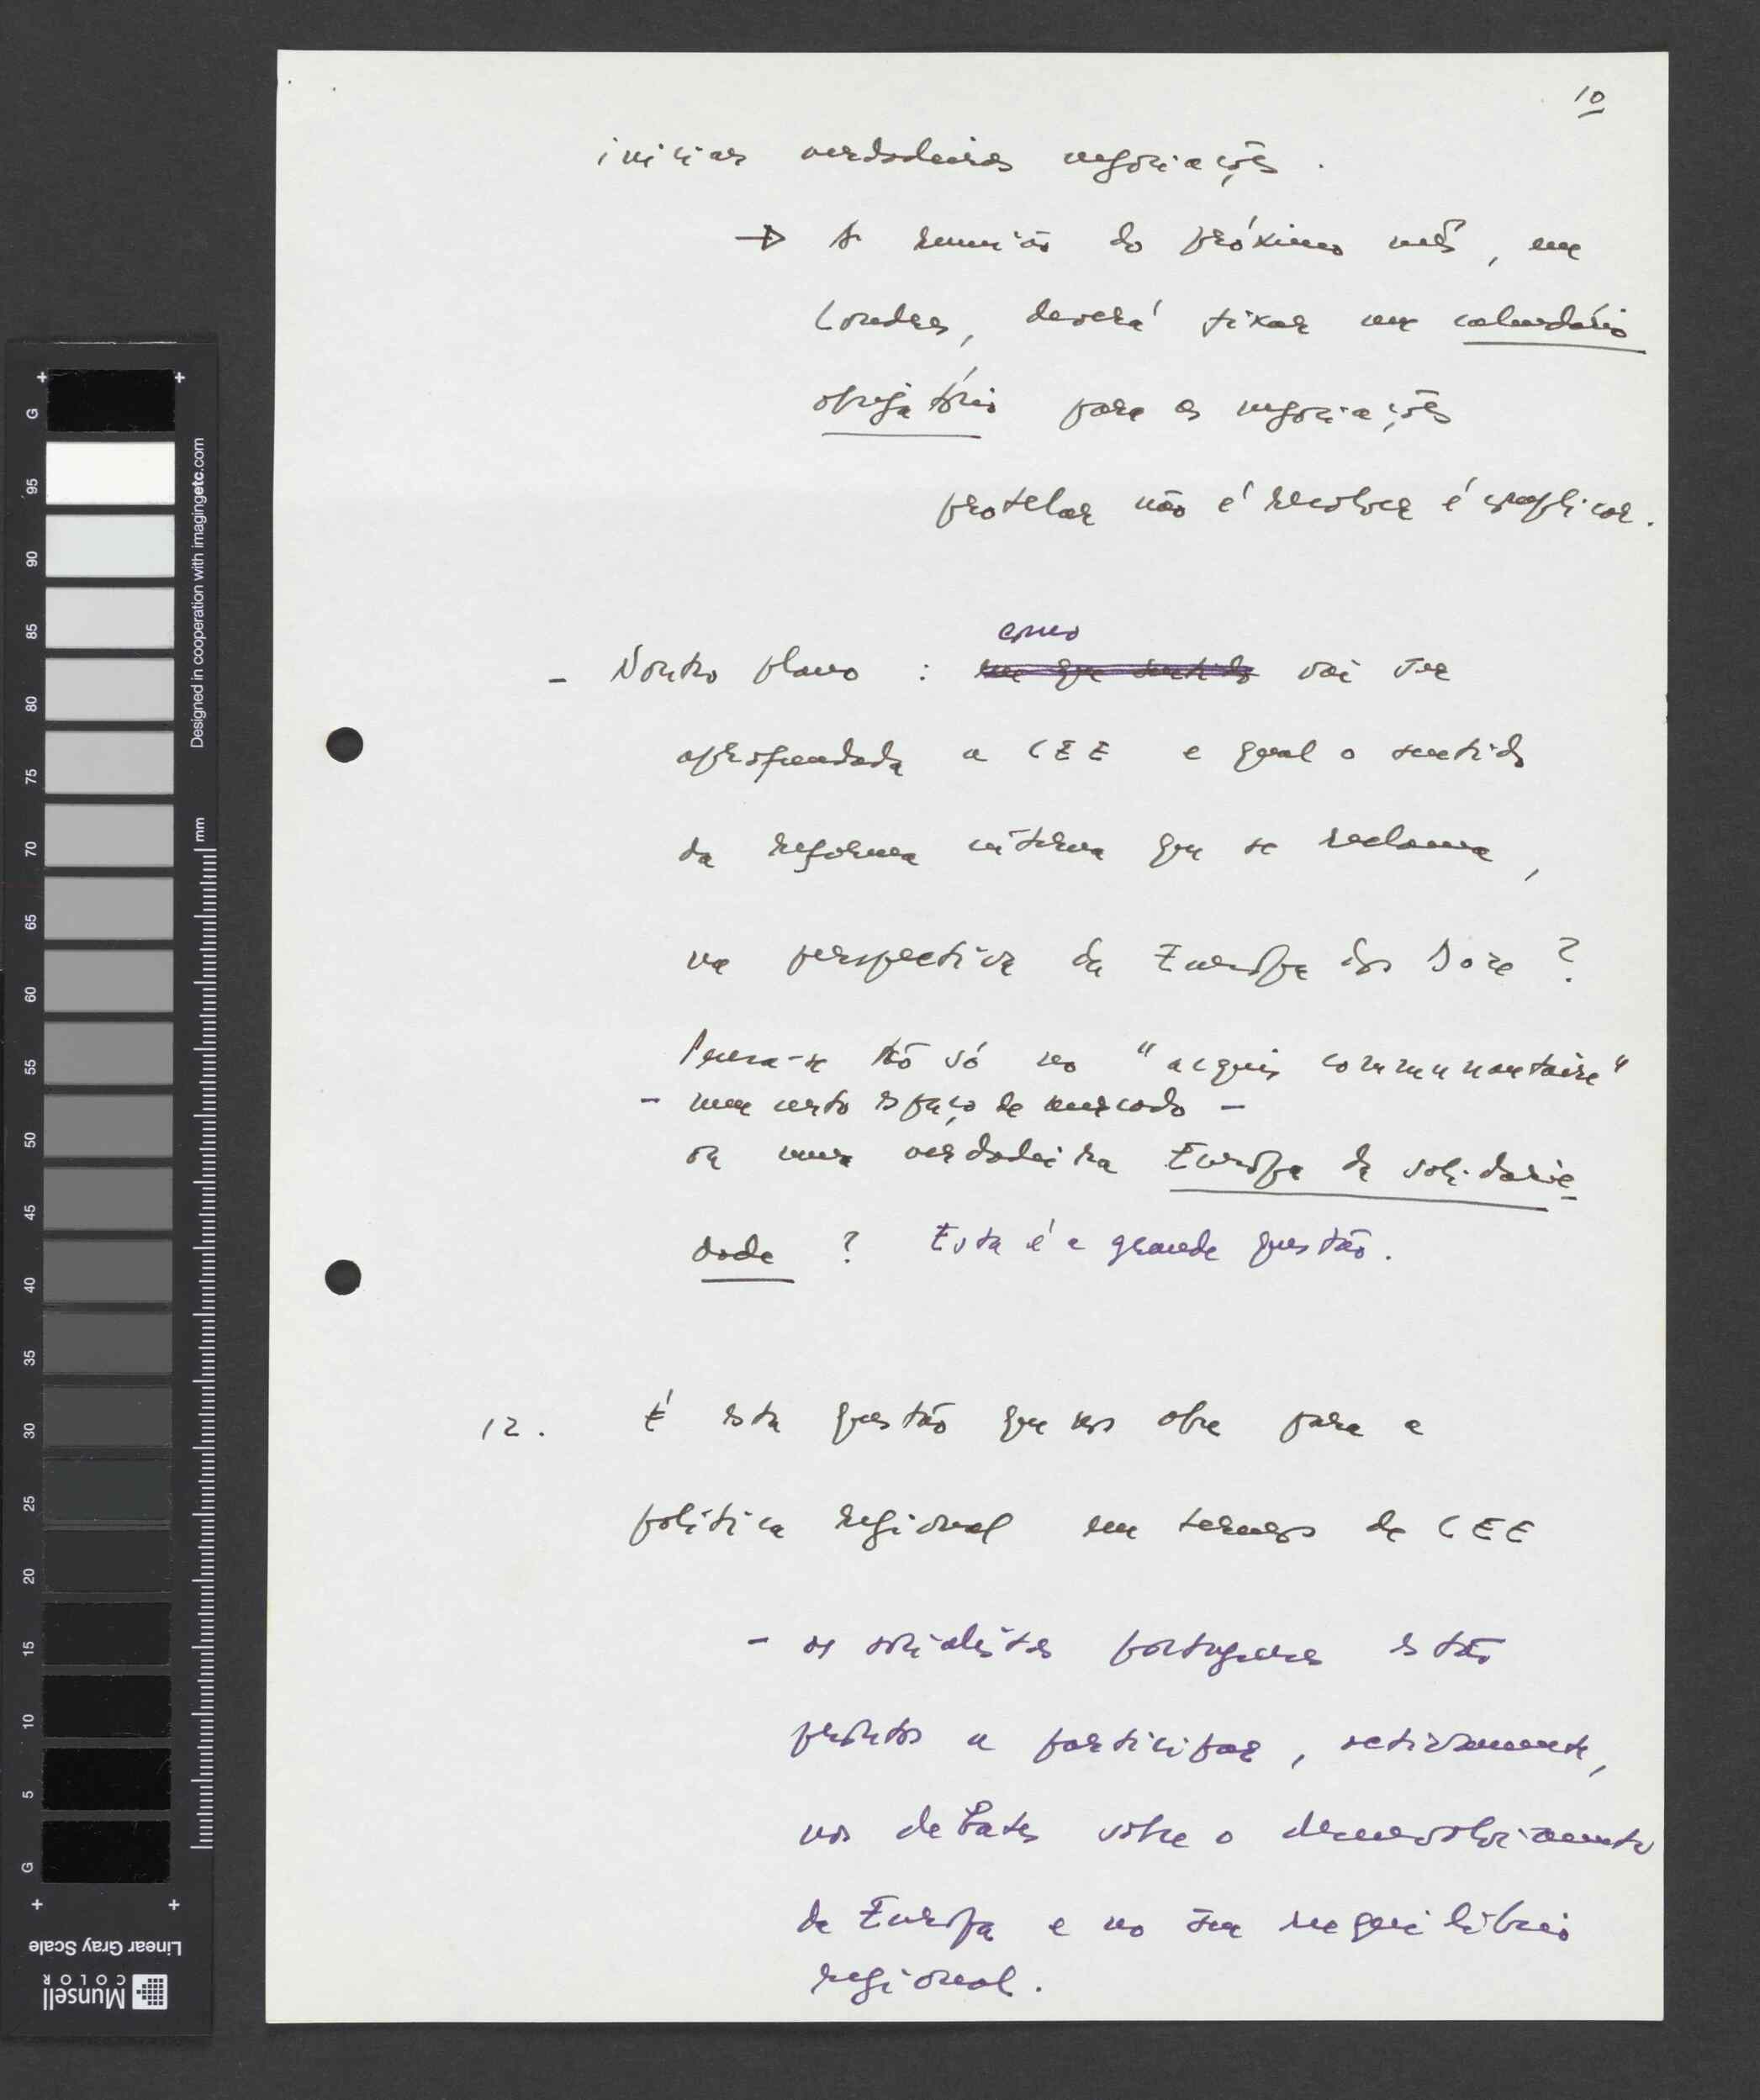 10
iniciar verdadeiras negociações.
→ A reunião do próximo mês, em
Londres, deverá fixar um calendário
obrigatório para as negociações
protelar não é resolver é complicar.
como
- Noutro plano : em que sentido vai ser
aprofundada a CEE e qual o sentido
da reforma interna que se reclama,
na perspectiva da Europa dos Doze ?
Pensa-se tão só no "acquis communautaire"
- num certo espaço de mercado -
ou numa verdadeira Europa da solidarie
dade ? Esta é a grande questão.
12. É esta questão que nos abre para a
política regional em termos de CEE
- os socialistas portugueses estão
prontos a participar, activamente,
nos debates sobre o desenvolvimento
da Europa e no seu reequilíbrio
regional.
G
95
90
85
80
75
70
65
60
55
50
45
40
35
30
25
20
15
10
5
G
Designed in cooperation with imagingetc.com
mm
Linear Gray Scale
Munsell
COLOR